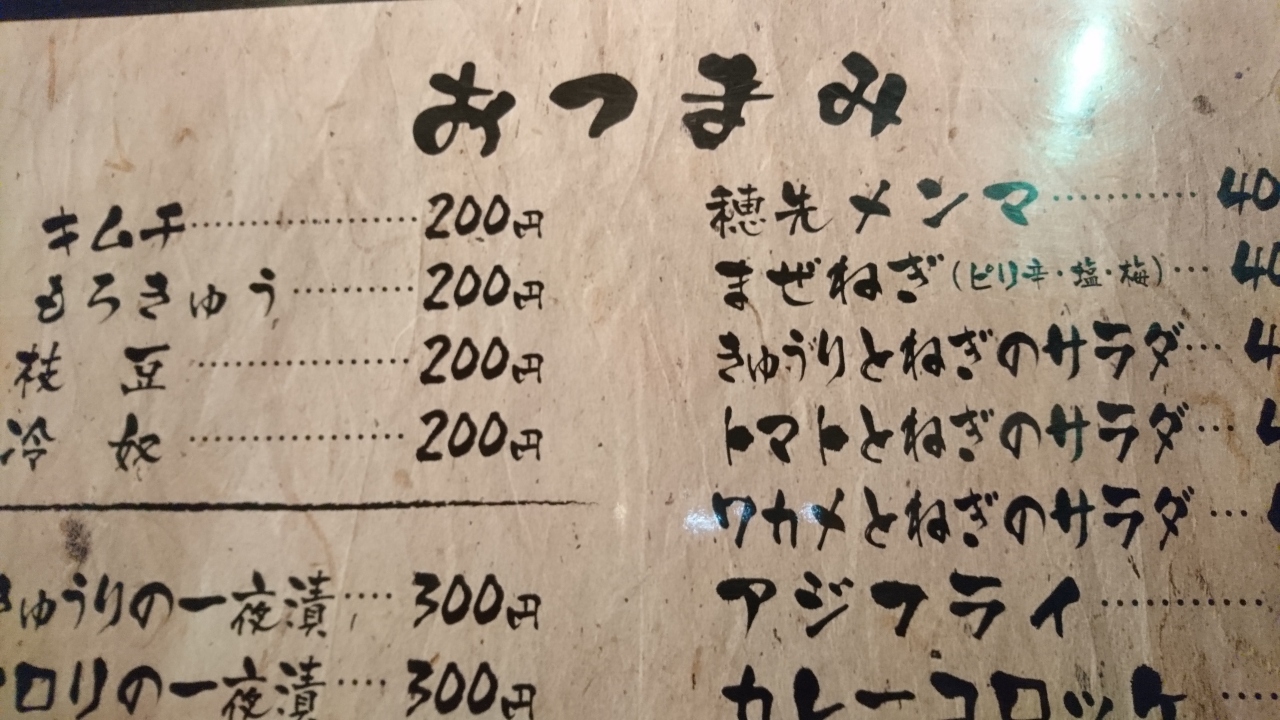 おつまみ
キムチ 200円
もろきゅう 200円
枝豆 200円
冷奴 200円
きゅうりの一夜漬 300円
ロリの一夜漬 300円
穂先メンマ 40
まぜねぎ(ピリ辛・塩・梅) 40
きゅうりとねぎのサラダ 4
トマトとねぎのサラダ
ワカメとねぎのサラダ
アジフライ
カレーコロッケ